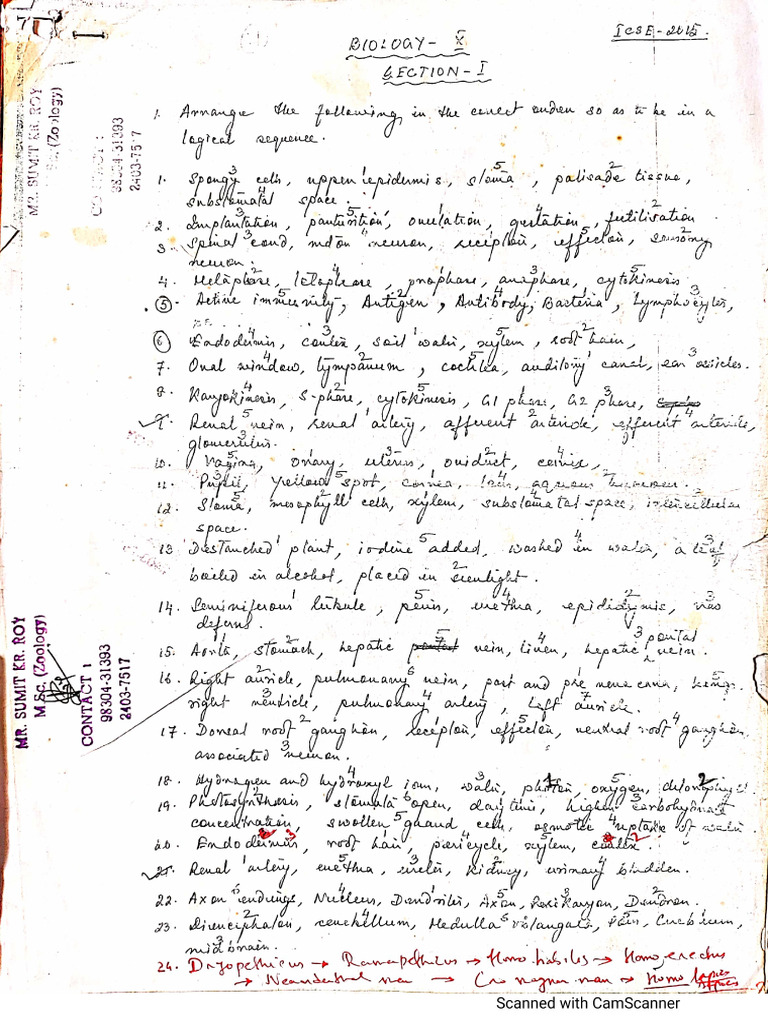 ICSE-2015.
BIOLOGY- X
SECTION-I
MR. SUMIT KR. ROY
(Zoology)
98304-31393
2403-7517
1. Arrange the following in the correct order so as to be in a
logical sequence.
1. Spongy³ cells, upper¹ epidermis, stoma⁵, palisade² tissue,
substomatal⁴ space.
2. Implantation³, parturition⁵, ovulation¹, gestation⁴, fertilisation²
3. Spinal³ cord, motor⁴ neuron, receptor, effector, sensory
neuron.
4. Metaphase², Telophase⁴, prophase, anaphase³, cytokinesis⁵
5. Active immunity, Antigen, Antibody, Bacteria, Lymphocytes,
6. Endodermis⁴, cortex³, soil¹ water, xylem⁵, root² hair,
7. Oval window, tympanum, cochlea, auditory canal, ear³ ossicles.
8. Karyokinesis⁴, S-phase², cytokinesis⁵, G1 phase, G2 phase³,
9. Renal⁵ vein, renal¹ artery, afferent² arteriole, efferent⁴ arteriole,
glomerulus³.
10. Vagina⁵, ovary, uterus, oviduct, cervix⁴,
11. Pupil, yellow⁵ spot, cornea, lens, aqueous humour.
12. Stoma⁵, mesophyll cell, xylem, substomatal⁴ space, intercellular
space.
13 Destarched¹ plant, iodine⁵ added, washed⁴ in water, a leaf³
boiled in alcohol, placed in² sunlight.
14. Seminiferous¹ tubule, penis⁵, urethra⁴, epididymis², vas³
deferens.
15. Aorta¹, stomach², hepatic vein⁵, liver⁴, hepatic portal³ vein.
16. Right auricle², pulmonary⁶ vein, post and pre vena cava, lungs⁵.
right ventricle³, pulmonary⁴ artery, left⁷ auricle.
17. Dorsal root² ganglion, receptor, effector⁵, ventral root⁴ ganglion
associated³ neuron.
18. Hydrogen and hydroxyl⁴ ions, water, photon, oxygen⁵, chlorophyll
19. Photosynthesis, stomata⁶ open, day time, higher³ carbohydrate
concentration, swollen⁵ guard cell, osmotic⁴ uptake of water.
20. Endodermis, root hair, pericycle, xylem, cortex.
21. Renal¹ artery, urethra⁵, ureter³, kidney², urinary⁴ bladder.
22. Axon⁶ endings, Nucleus, Dendrites¹, Axon⁵, Perikaryon³, Dendron².
23. Diencephalon², cerebellum, Medulla oblongata, Pons, Cerebrum,
midbrain³.
MR. SUMIT KR. ROY
M.Sc. (Zoology)
CONTACT :
98304-31393
2403-7517
24. Dryopethicus → Ramapethicus → Homo habiles → Homo erectus
→ Neanderthal man → Cro magnon man → Homo
Scanned with CamScanner